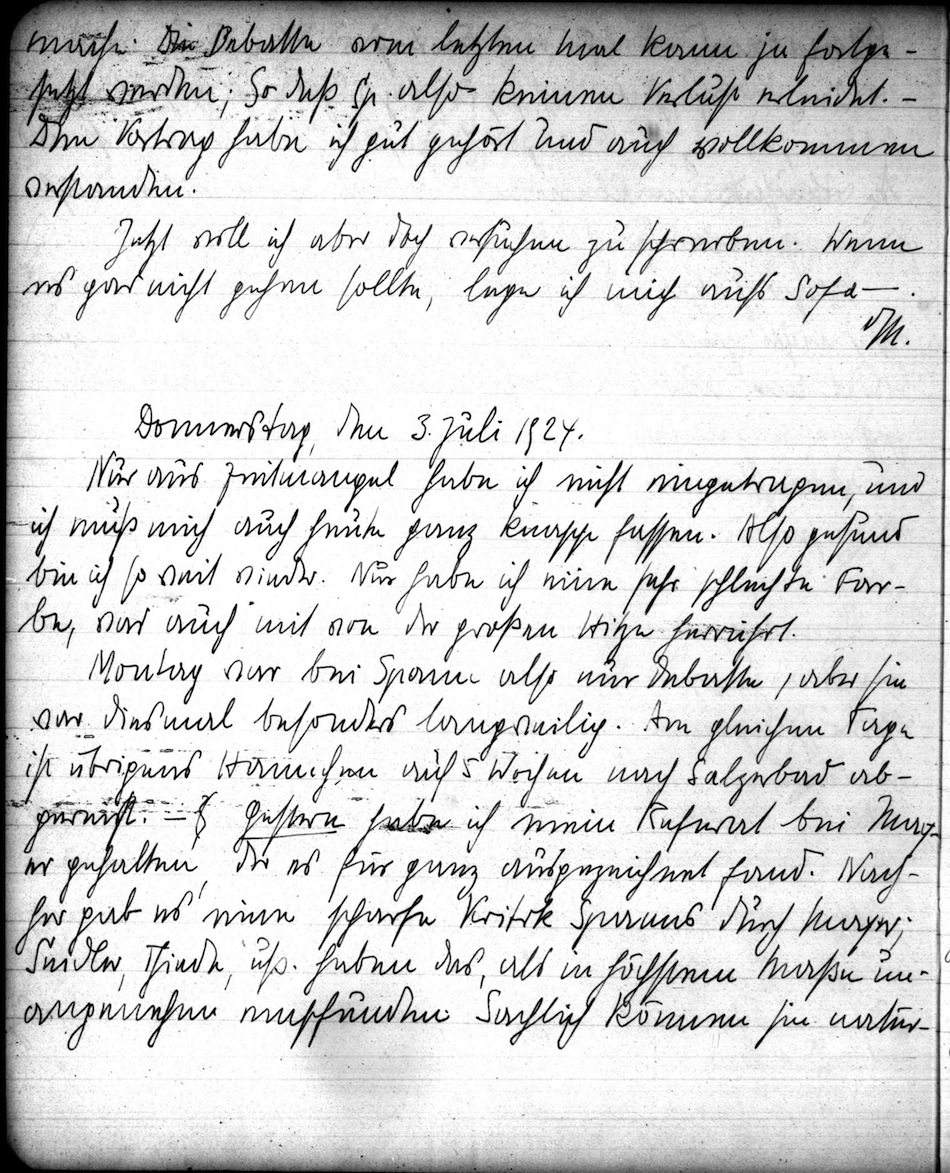 mache. Die Debatte vom letzten Mal kann ja fortge-
setzt werden; So daß Sp. also keinen Verlust erleidet. –
Den Vortrag habe ich gut gehört und auch vollkommen
verstanden.
Jetzt will ich aber doch versuchen zu schreiben. Wenn
es gar nicht gehen sollte, lege ich mich aufs Sofa –.
M.
Donnerstag, den 3. Juli 1924.
Nur aus Zeitmangel habe ich nicht eingetragen, und
ich muß mich auch heute ganz knapp fassen. Also gesund
bin ich so weit wieder. Nur habe ich eine sehr schlechte Far-
be, was auch mit von der großen Hitze herrührt.
Montag war bei Spann also nur Debatte, aber sie
war diesmal besonders langweilig. Am gleichen Tage
ist übrigens Hannchen auf 5 Wochen nach Salzerbad ab-
gereist. – Gestern habe ich mein Referat bei May-
er gehalten, der es für ganz ausgezeichnet fand. Nach-
her gab es eine scharfe Kritik Spanns durch Mayer;
Seidler, Thiede, usf. haben das, als in höchstem Maße un-
angenehm empfunden. Sachlich können sie natür-